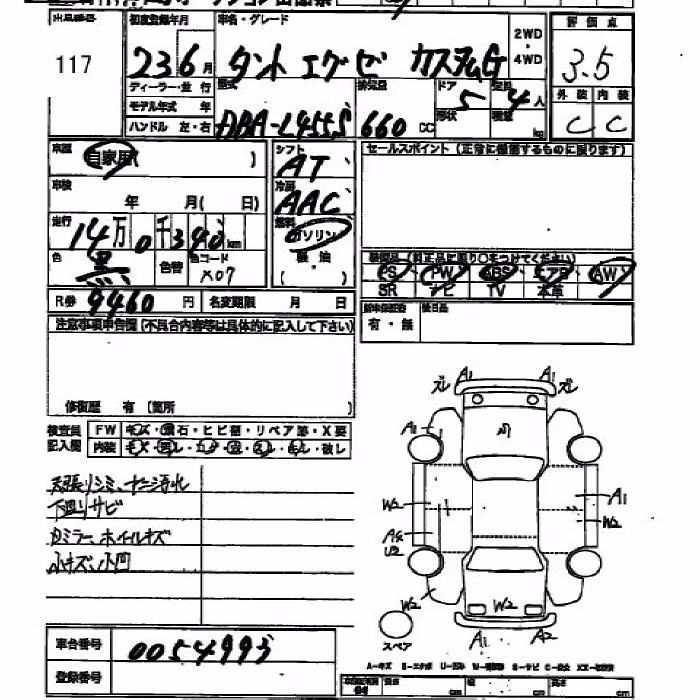 出品番号 初度登録年月 車名・グレード 2WD・4WD 評価点
117 23 6月 タント エグゼ カスタムG 3.5
ディーラー・並行 型式 排気量 ドア 5 定員 4人 外装 内装
モデル年式 年 形状 積載 kg C C
ハンドル 左・右 DBA-L455S 660 CC
車歴 自家用( ) シフト AT セールスポイント(正常に機能するものに限ります)
車検 年 月( 日) 冷房 AAC
走行 14万0千340km 燃料 ガソリン 軽油 ( )
色 黒 色替 色コード X07
装備品(純正品に限り○をつけてください)
PS PW ABS エアB AW
SR ナビ TV 本革
R券 9460円 名変期限 月 日 新車保証書 有・無 後日品
注意事項申告欄(不具合内容等は具体的に記入して下さい)
修復歴 有(箇所 )
検査員 FW キズ・飛石・ヒビ割・リペア跡・X要
記入欄 内装 キズ・汚レ・コゲ・
天張りシミ、ナニ汚れ
下廻りサビ
ミラー、ホイルキズ
小キズ、小凹
ズレ A1 A1 ズレ
A2
W2 A1
W2
A4
U2
W2 W2
スペア A1 A2
車台番号 0054993
登録番号
A-キズ E-エクボ U-凹み W-補修跡 S-サビ C-腐食 XX-交換済
長さ cm 幅 cm 高さ cm